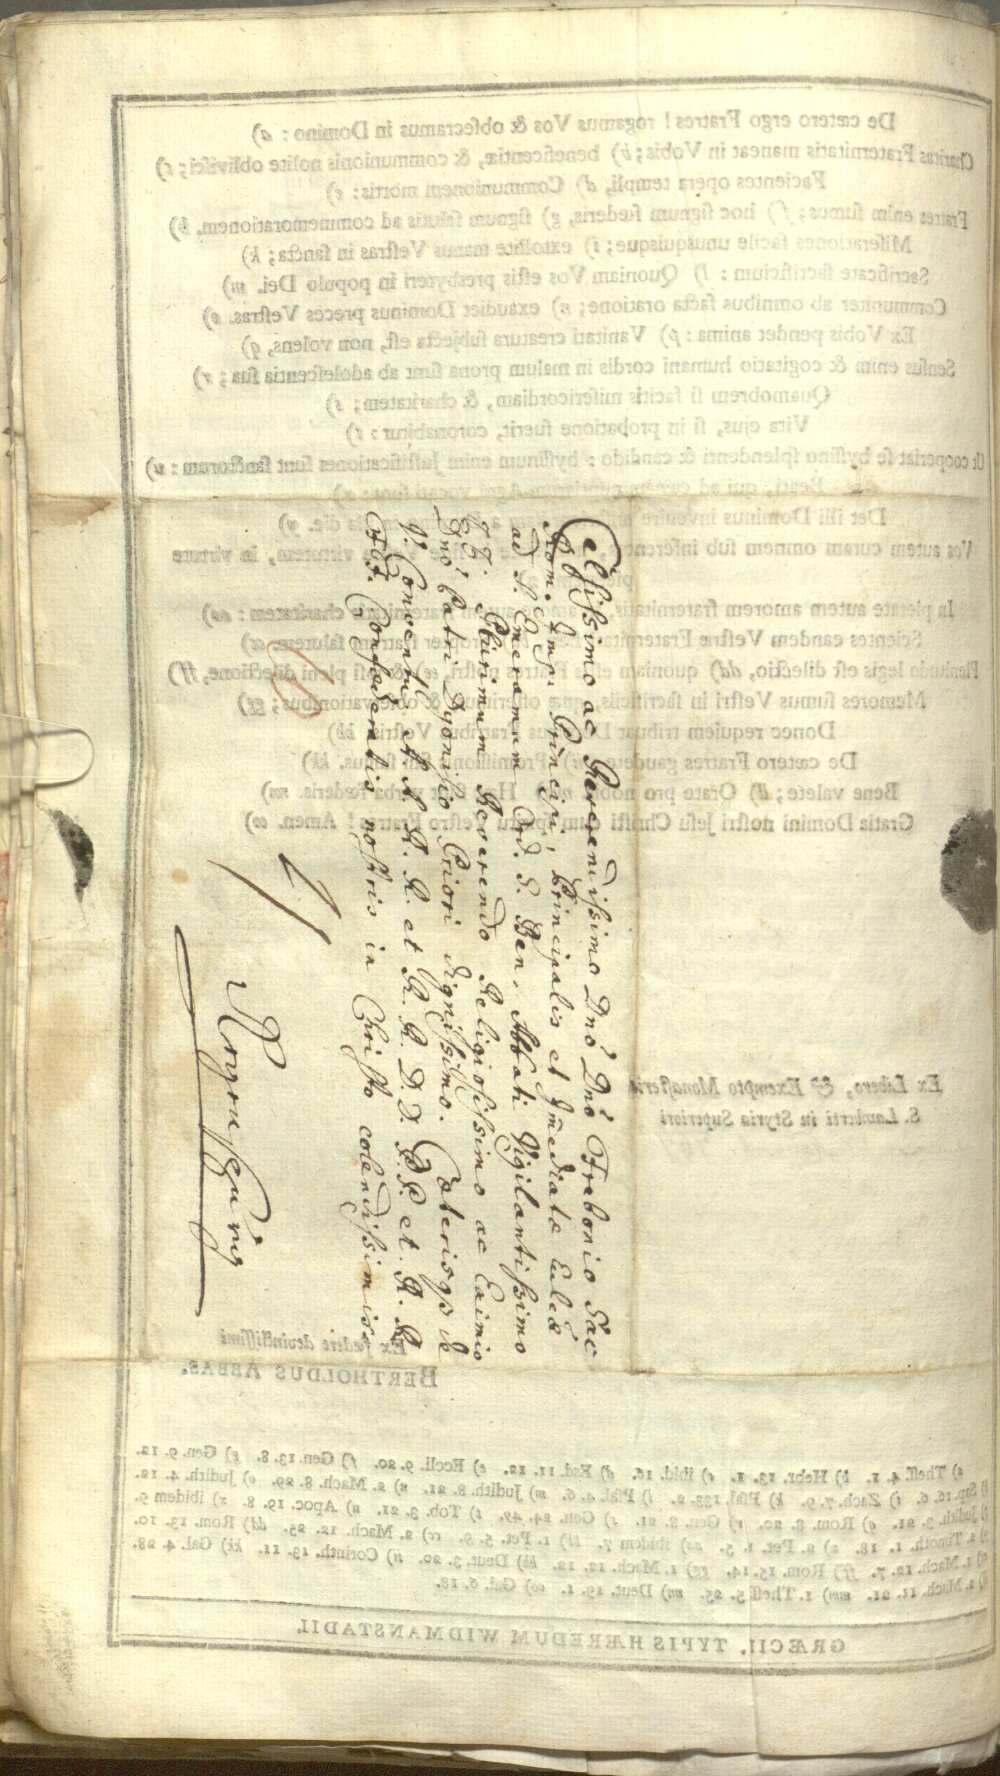 Celsissimo ac Reverendissimo Dno Dno Frobenio Sac
Rom. Imp. Principi, Principalis et Imediatæ Ecleæ
ad S. Emeramum Ord. S. Ben. Abbati Vigilantissimo
Plurimum Reverendo Religiosissimo ac Eximio
Dno Patri Dyonisio Priori dignissimo. Cæterisqs de
V. Conventu A. R. R. et R. R. D. D. P.P. et R. R.
F.F. Confœderatis nostris in Christo colendissimis.
De cætero ergo Fratres! rogamus Vos & obsecramus in Domino: a)
Charitas Fraternitatis maneat in Vobis; b) beneficentiæ, & communionis nolite oblivisci; c)
Facientes opera templi, d) Communionem mortis: e)
Fratres enim sumus; f) hoc signum fœderis, g) signum salutis ad commemorationem. h)
Miserationes facile unusquisque; i) extollite manus Vestras in sancta; k)
Sacrificate sacrificium: l) Quoniam Vos estis presbyteri in populo Dei. m)
Communiter ab omnibus facta oratione; n) exaudiet Dominus preces Vestras. o)
Ex Vobis pendet anima: p) Vanitati creatura subjecta est, non volens, q)
Sensus enim & cogitatio humani cordis in malum prona sunt ab adolescentia sua; r)
Quamobrem si facitis misericordiam, & charitatem; s)
Vita ejus, si in probatione fuerit, coronabitur: t)
Ut cooperiat se byssino splendenti & candido: byssinum enim Justificationes sunt sanctorum: u)
Beati, qui ad
Det illi Dominus invenire
Vos autem curam omnem sub inferentes virtutem, in virtute
In pietate autem amorem fraternitatis charitatem: aa)
Scientes eandem Vestræ Fraternitati propter fratrum salutem. cc)
Plenitudo legis est dilectio, dd) quoniam Fratres nostri, ee) pleni dilectione, ff)
Memores sumus Vestri in sacrificiis, quæ offerimus, & observationibus; gg)
Donec requiem tribuat Dominus Fratribus Vestris. hh)
De cætero Fratres gaudete, Promissionis filii sumus. kk)
Bene valete; ll) Orate pro nobis, Hæc sunt verba fœderis. nn)
Gratia Domini nostri Jesu Christi cum spiritu Vestro Fratres! Amen. oo)
Ex Libero, & Exempto Monasterio
S. Lamberti in Styria Superiori
Ex fœdere devinctissimi
BERTHOLDUS ABBAS.
a) Thess. 4. 1. b) Hebr. 13. 1. c) ibid. 16. d) Esd. 11. 12. e) Eccli. 9. 20. f) Gen. 13. 8. g) Gen. 9. 12.
Sap. 16. 6. i) Zach. 7. 9. k) Psal. 133. 2. l) Psal. 4. 6. m) Judith. 8. 21. n) 2. Mach. 8. 29. o) Judith. 4. 12.
Judith. 3. 21. q) Rom. 8. 20. r) Gen. 8. 21. s) Gen. 24. 49. t) Tob. 3. 21. u) Apoc. 19. 8. x) ibidem 9.
2. Timoth. 1. 18. z) 2. Pet. 1. 5. aa) ibidem 7. bb) 1. Pet. 5. 9. cc) 2. Mach. 12. 25. dd) Rom. 13. 10.
1. Mach. 12. 7. ff) Rom. 15. 14. gg) 1. Mach. 12. 12. hh) Deut. 3. 20. ii) Corinth. 13. 11. kk) Gal. 4. 28.
2. Mach. 11. 21. mm) 1. Thess. 5. 25. nn) Deut. 19. 1. oo) Gal. 6. 18.
GRÆCII, TYPIS HÆREDUM WIDMANSTADII.